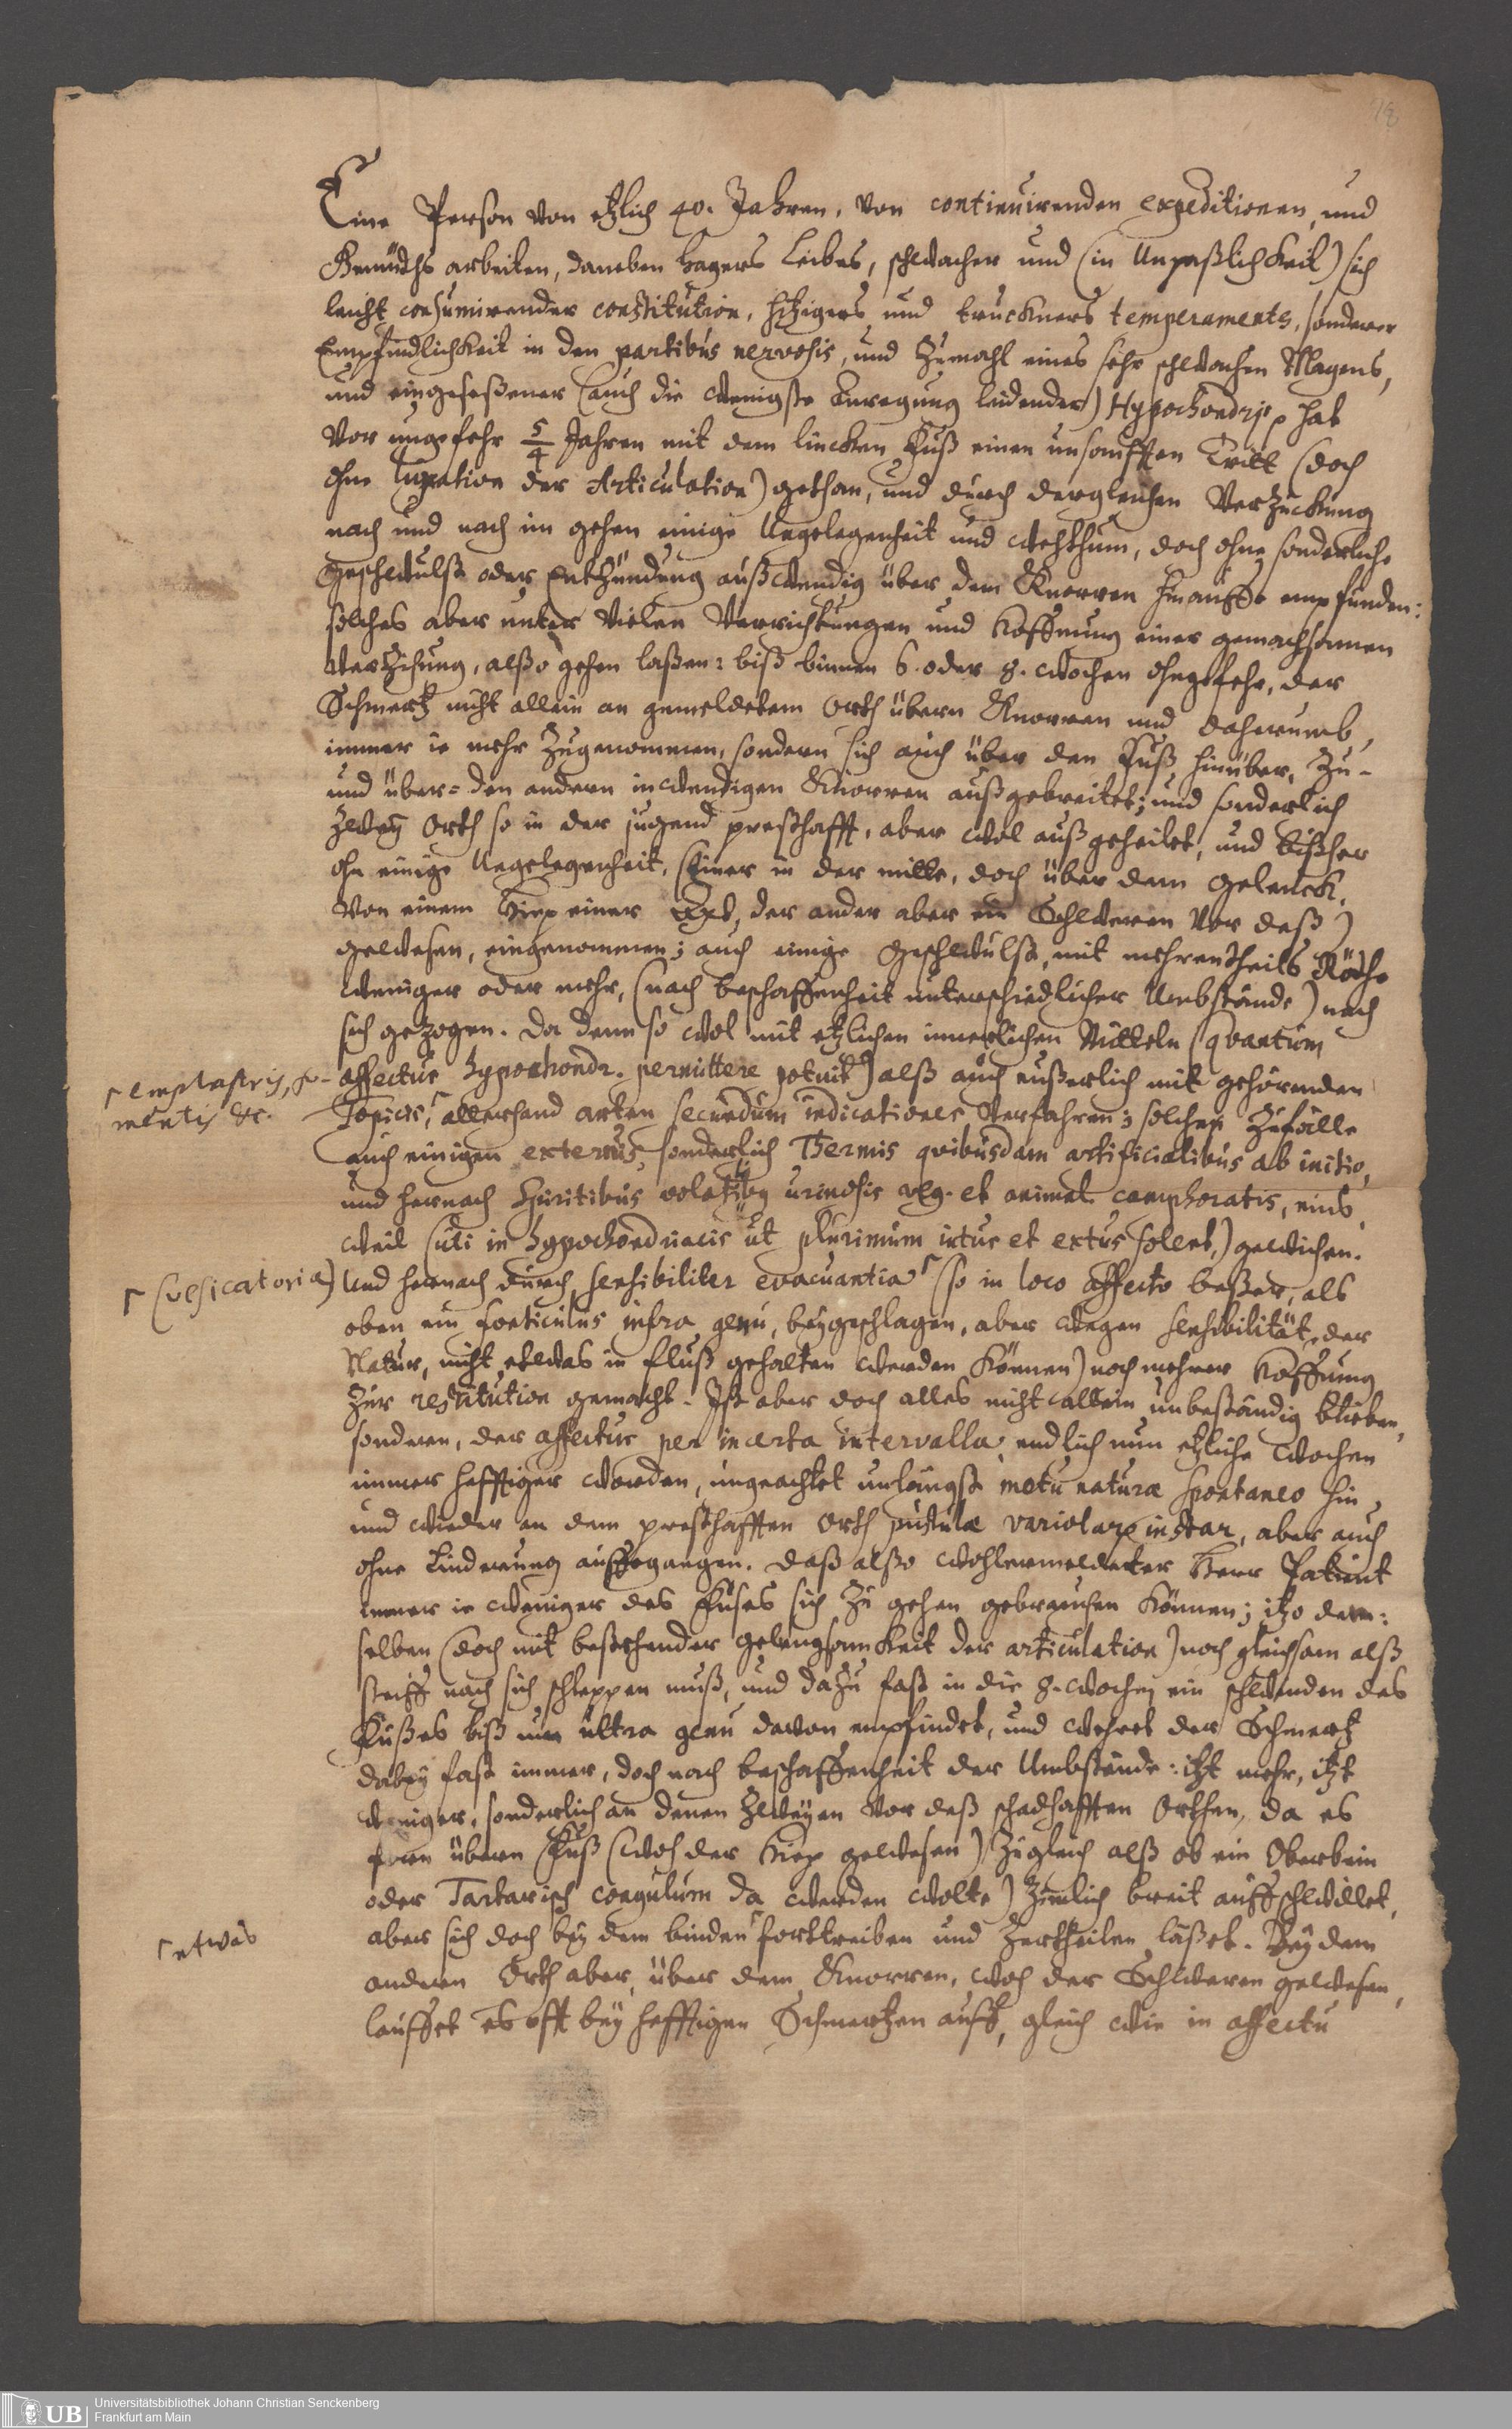 18
Eine Person von etzlich 40. Jahren, von continuirenden expeditionen, und
Gemüths arbeiten, daneben hagers Leibes, schwacher und (in Unpaßlichkeit) sich
leicht consumirender constitution, hitziges und truckners temperaments, sonderer
Empfindlichkeit in den partibus nervosis, und zumahl eines sehr schwachen Magens,
und eingeseßener (auch die wenigste Anregung leidender) Hypochondrie, hat
vor ungefehr 5/4 Jahren mit dem lincken Fuß einen unsanfften Tritt (doch
ohne luxation der Articulation) gethan, und durch dergleichen Verzuckung
nach und nach im gehen einige Ungelegenheit und wehthum, doch ohne sonderliche
Geschwulst oder Entzündung außwendig über dem Knorren hinauff empfunden:
solches aber unter vielen Verrichtungen und Hoffnung einer gemachsamen
Verzihung, also gehen laßen: biß binnen 6. oder 8. Wochen ohngefehr, der
Schmertz nicht allein an gemeldetem Orth übern Knorren und daherumb,
immer ie mehr zugenommen, sondern sich auch über den Fuß hinüber, zu-
und über- den andern inwendigen Knorren außgebreitet; und sonderlich
zwey Orth so in der jugend presthafft, aber wol außgeheilet, und bißher
ohn einige Ungelegenheit, (einer in der mitte, doch über dem Gelenck,
von einem Hiep einer Axt, der ander aber ein Schweren vor deß)
gewesen, eingenommen; auch einige Geschwulst, mit mehrentheils Röthe
weniger oder mehr, (nach beschaffenheit unterschiedlicher Umbstände) nach
sich gezogen. Da denn so wol mit etzlichen innerlichen Mitteln (qvantum
affectus hypochondr. permittere potuit) alß auch eußerlich mit gehörenden
┌ emplastris, fo-
mentis &c.
Topicis,┌ allerhand arten secundum indicationes verfahren; solchen Zufälle
auch einigen externis, sonderlich Thermis qvibusdam artificialibus ab initio,
und hernach Spiritibus volatilibus urinosis veg. et animal. camphoratis, eins
weil (uti in hypochondriacis ut plurimum intus et extus solet,) gewichen.
┌ (vesicatoria)
Und hernach durch sensibiliter evacuantia┌ (so in loco affecto beßer, als
oben ein fonticulus infra genu, beygeschlagen, aber wegen sensibilität der
Natur, nicht etwas in fluß gehalten werden können) noch mehrer Hoffnung
zur restitution gemacht. Ist aber doch alles nicht allein unbeständig blieben,
sondern, der affectus per incerta intervalla, endlich nun etzliche Wochen
immer hefftiger worden, ungeachtet unlängst motu naturæ spontaneo hin
und wieder an dem presthafften Orth pustulæ variolarum instar, aber auch
ohne Linderung auffgegangen. Daß also wohlermeldeter Herr Patient
immer ie weniger des Fußes sich zu gehen gebrauchen können; itzo dem-
selben (doch mit bestehender gelengsamkeit der articulation) noch gleichsam alß
steiff nach sich schleppen muß, und dazu fast in die 8. wochen ein schwinden des
Fußes biß nun ultra genu davon empfindet, und wehret der Schmertz
dabey fast immer, doch nach beschaffenheit der Umbstände: itzt mehr, itzt
weniger, sonderlich an denen zweyen vor deß schadhafften Orthen, da es
forn übern Fuß (woh der Hiep gewesen) zugleich alß ob ein Oberbein
oder Tartarisch coagulum da werden wolte) zimlich breit auffschwillet,
┌ etwas
aber sich doch bey dem binden┌ forttreiben und zertheilen läßet. Bey dem
andern Orth aber, über dem Knorren, woh der Schweren gewesen,
lauffet es offt bey hefftigen Schmertzen auff, gleich wie in affectu
UB
Universitätsbibliothek Johann Christian Senckenberg
Frankfurt am Main